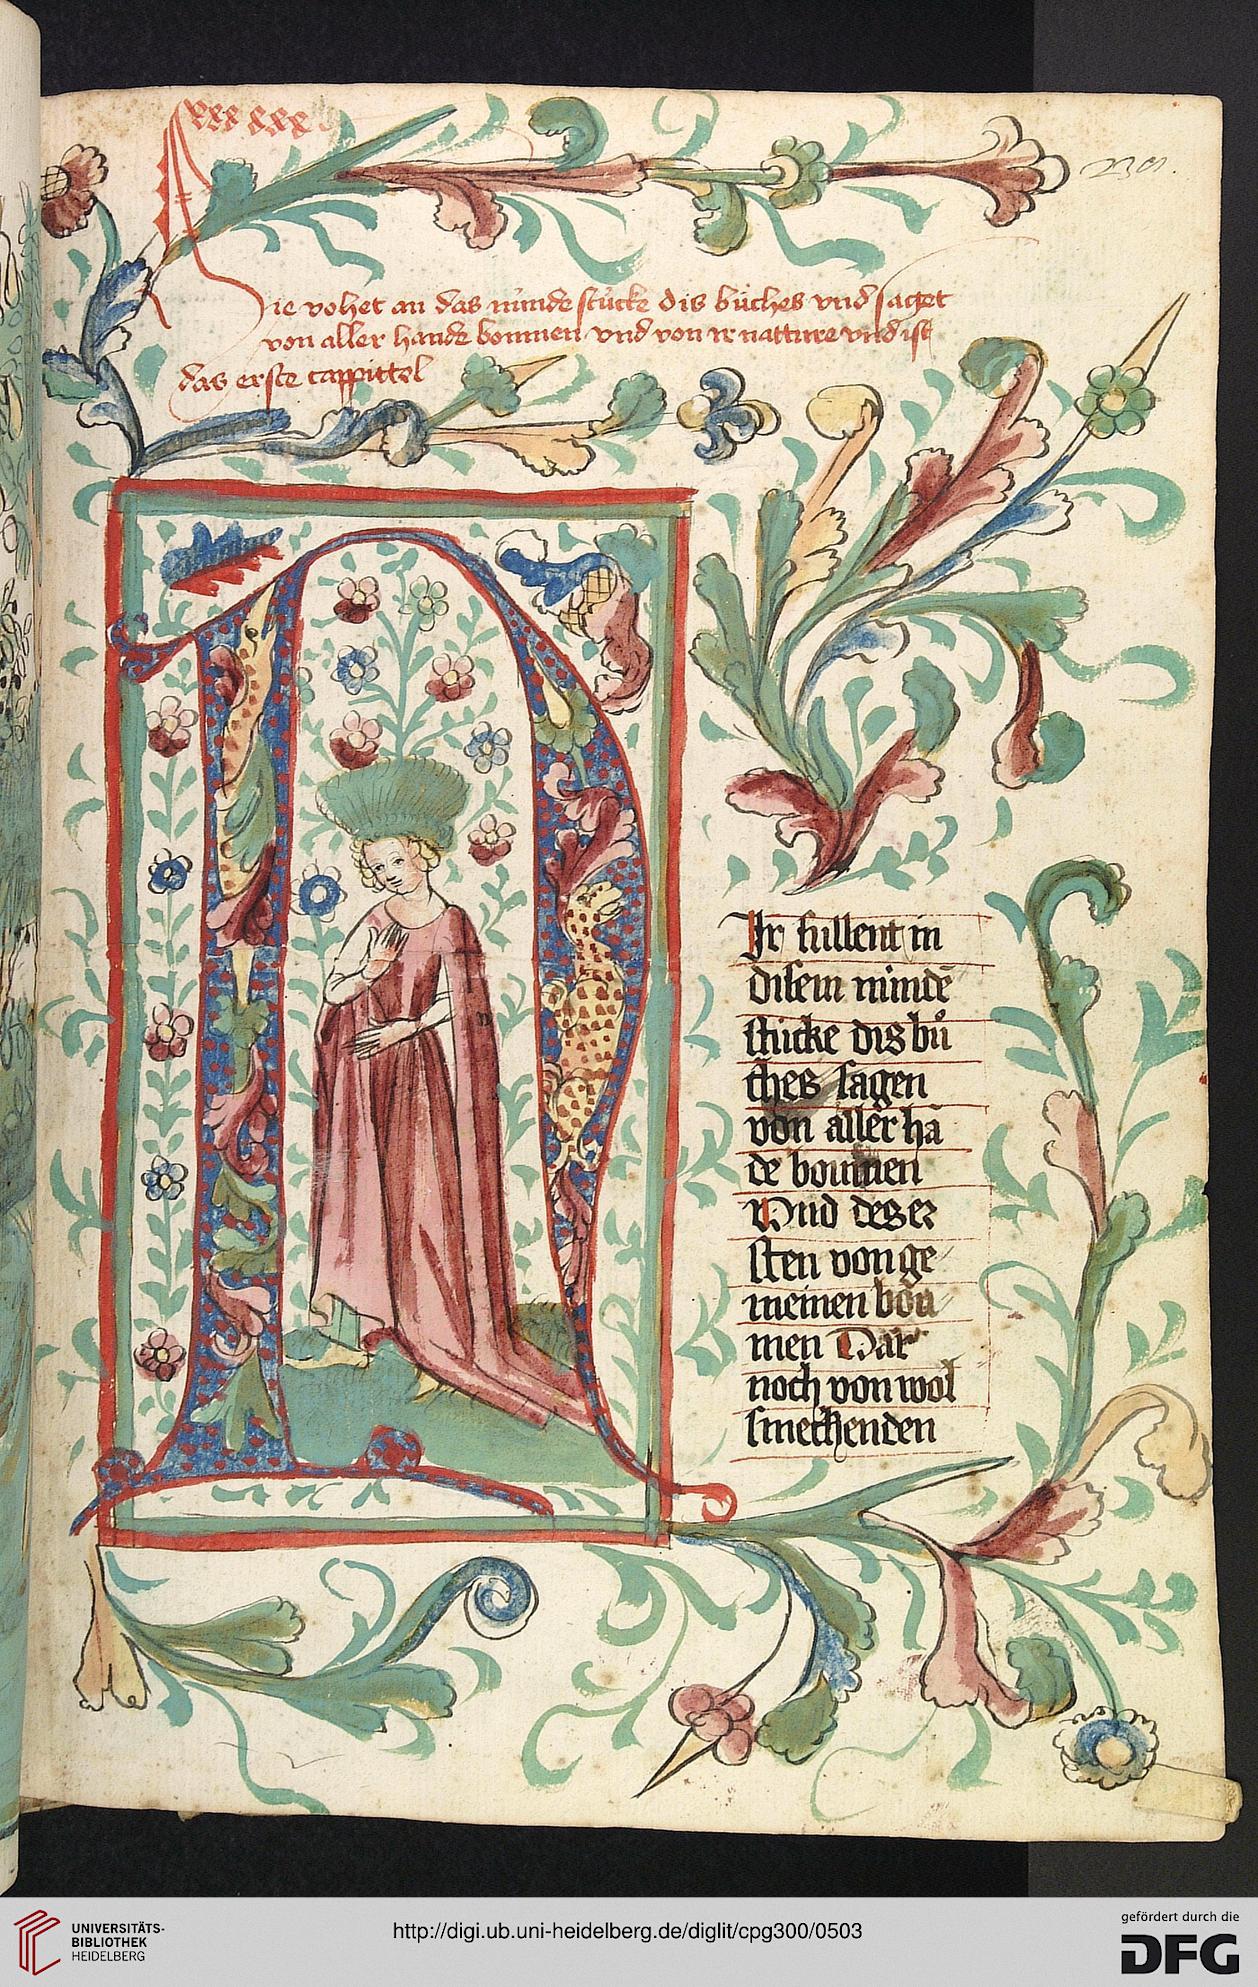 Hie vohet an das nunde stucke dis buches vnd saget
von aller hande bommen vnd von ir natture vnd ist
das erste cappittel
WIr sullent in
disem nundē
stucke dis bů
ches sagen
von aller hā
de boumen
Vnd des er
sten von ge
meinen böu
men Dar
noch von wol
smeckenden
UNIVERSITÄTS-
BIBLIOTHEK
HEIDELBERG
http://digi.ub.uni-heidelberg.de/diglit/cpg300/0503
gefördert durch die
DFG